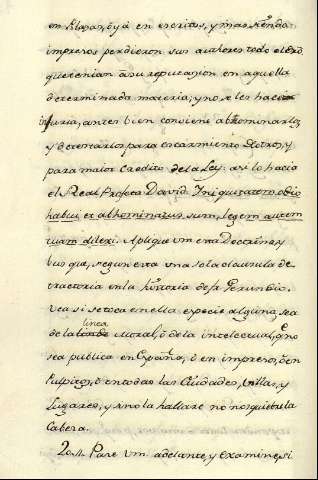 en Plazas, ó yá en escritos, y mas siendo
impresos perdieron sus authores todo el dro
que tenian á su reputacion en aquella
determinada materia; y no se les hace
injuria, antes bien conviene abhominarlos,
y detextarlos para escarmiento de otros, y
para maior credito de la Ley: asi lo hacia
el Real Profeta David. Iniquitatem odio
habui, et abhominatus sum, legem autem
tuam dilexi. Aplique Vm esta Doctrina, y
busque, segun esta una sola clausula de-
tractoria en la historia de fr. Gerundio.
Vea si se toca en ella especie alguna, sea
de la linea Moral, ó de la intelectual, q.e no
sea publica en España, ó en impresos, ó en
Pulpitos, ó en todas las Ciudades, Villas, y
Lugares; y si no la hallare no nos quiebre la
Cabeza.
Pase Vm. adelante, y examine, si